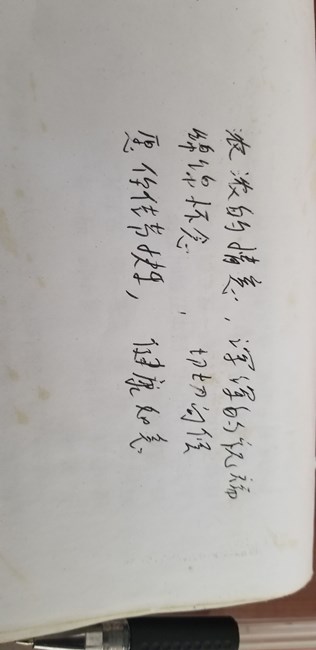 浓浓的情意，深深的祝福
绵绵怀念，切切问候
愿你佳节快乐，健康如意。